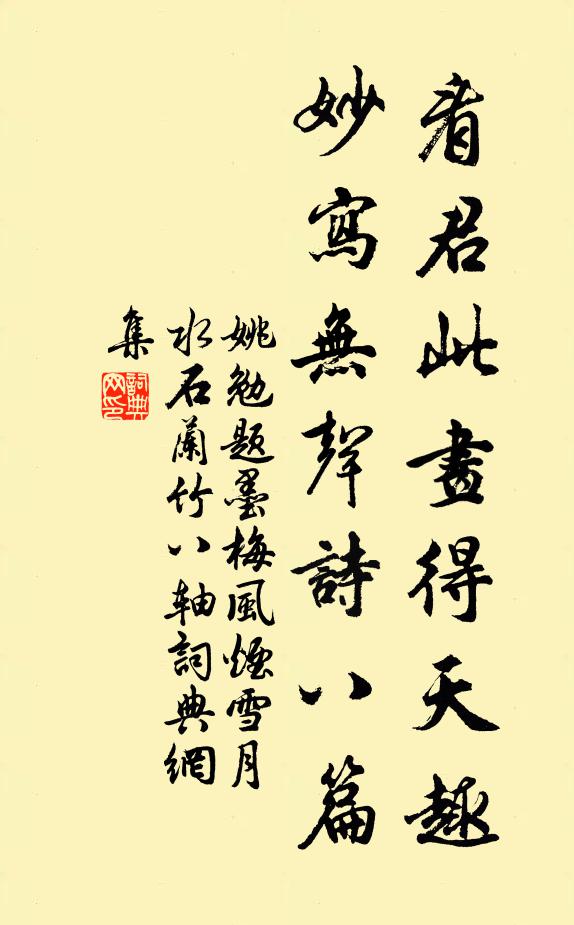 看君此畫得天趣
妙寫無聲詩八篇
姚勉題墨梅風煙雪月
水石蘭竹八軸詞典網
集
詞典
网印